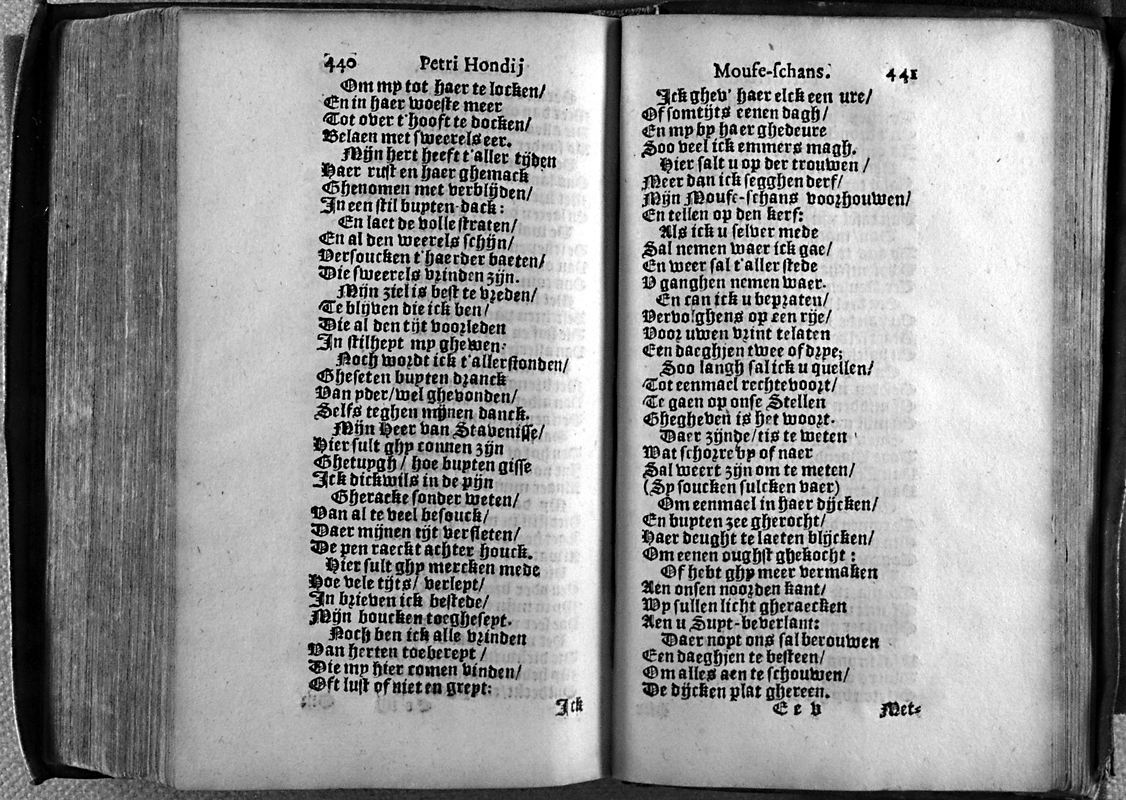 440 Petri Hondij
Om my tot haer te locken/
En in haer woeste meer
Tot over t'hooft te docken/
Belaen met sweerels eer.
Mijn hert heeft t'aller tijden
Haer rust en haer ghemack
Ghenomen met verblijden/
In een stil buyten-dack:
En laet de volle straten/
En al den weerels schijn/
Versoucken t'haerder baeten/
Die sweerels vrinden zijn.
Mijn ziel is best te vreden/
Te blijven die ick ben/
Die al den tijt voorleden
In stilheyt my ghewen:
Noch wordt ick t'allerstonden/
Gheseten buyten dranck
Van yder/wel ghevonden/
Selfs teghen mijnen danck.
Mijn Heer van Stavenisse/
Hier sult ghy connen zijn
Ghetuygh/ hoe buyten gisse
Ick dickwils in de pijn
Gheracke sonder weten/
Van al te veel besouck/
Daer mijnen tijt versleten/
De pen raeckt achter houck.
Hier sult ghy mercken mede
Hoe vele tijts/ verleyt/
In brieven ick bestede/
Mijn boucken toegheseyt.
Noch ben ick alle vrinden
Van herten toebereyt /
Die my hier comen vinden/
Oft lust of niet en greyt:
Ick
Mouse-schans. 441
Ick ghev' haer elck een ure/
Of somtijts eenen dagh/
En my by haer ghedeure
Soo veel ick emmers magh.
Hier salt u op der trouwen /
Meer dan ick segghen derf/
Mijn Mouse-schans voorhouwen/
En tellen op den kerf:
Als ick u selver mede
Sal nemen waer ick gae/
En weer sal t'aller stede
V ganghen nemen waer.
En can ick u bepraten/
Vervolghens op een rije/
Voor uwen vrint te laten
Een daeghjen twee of drye;
Soo langh sal ick u quellen/
Tot eenmael rechtevoort/
Te gaen op onse Stellen
Ghegheven is het woort.
Daer zijnde/tis te weten
Wat schorre vy of naer
Sal weert zijn om te meten/
(Sy soucken sulcken vaer)
Om eenmael in haer dijcken/
En buyten zee gherocht/
Haer deught te laeten blijcken/
Om eenen oughst ghekocht :
Of hebt ghy meer vermaken
Aen onsen noorden kant/
Wy sullen licht gheraecken
Aen u Suyt-beverlant:
Daer noyt ons sal berouwen
Een daeghjen te besteen/
Om alles aen te schouwen/
De dijcken plat ghereen.
E e v Met-